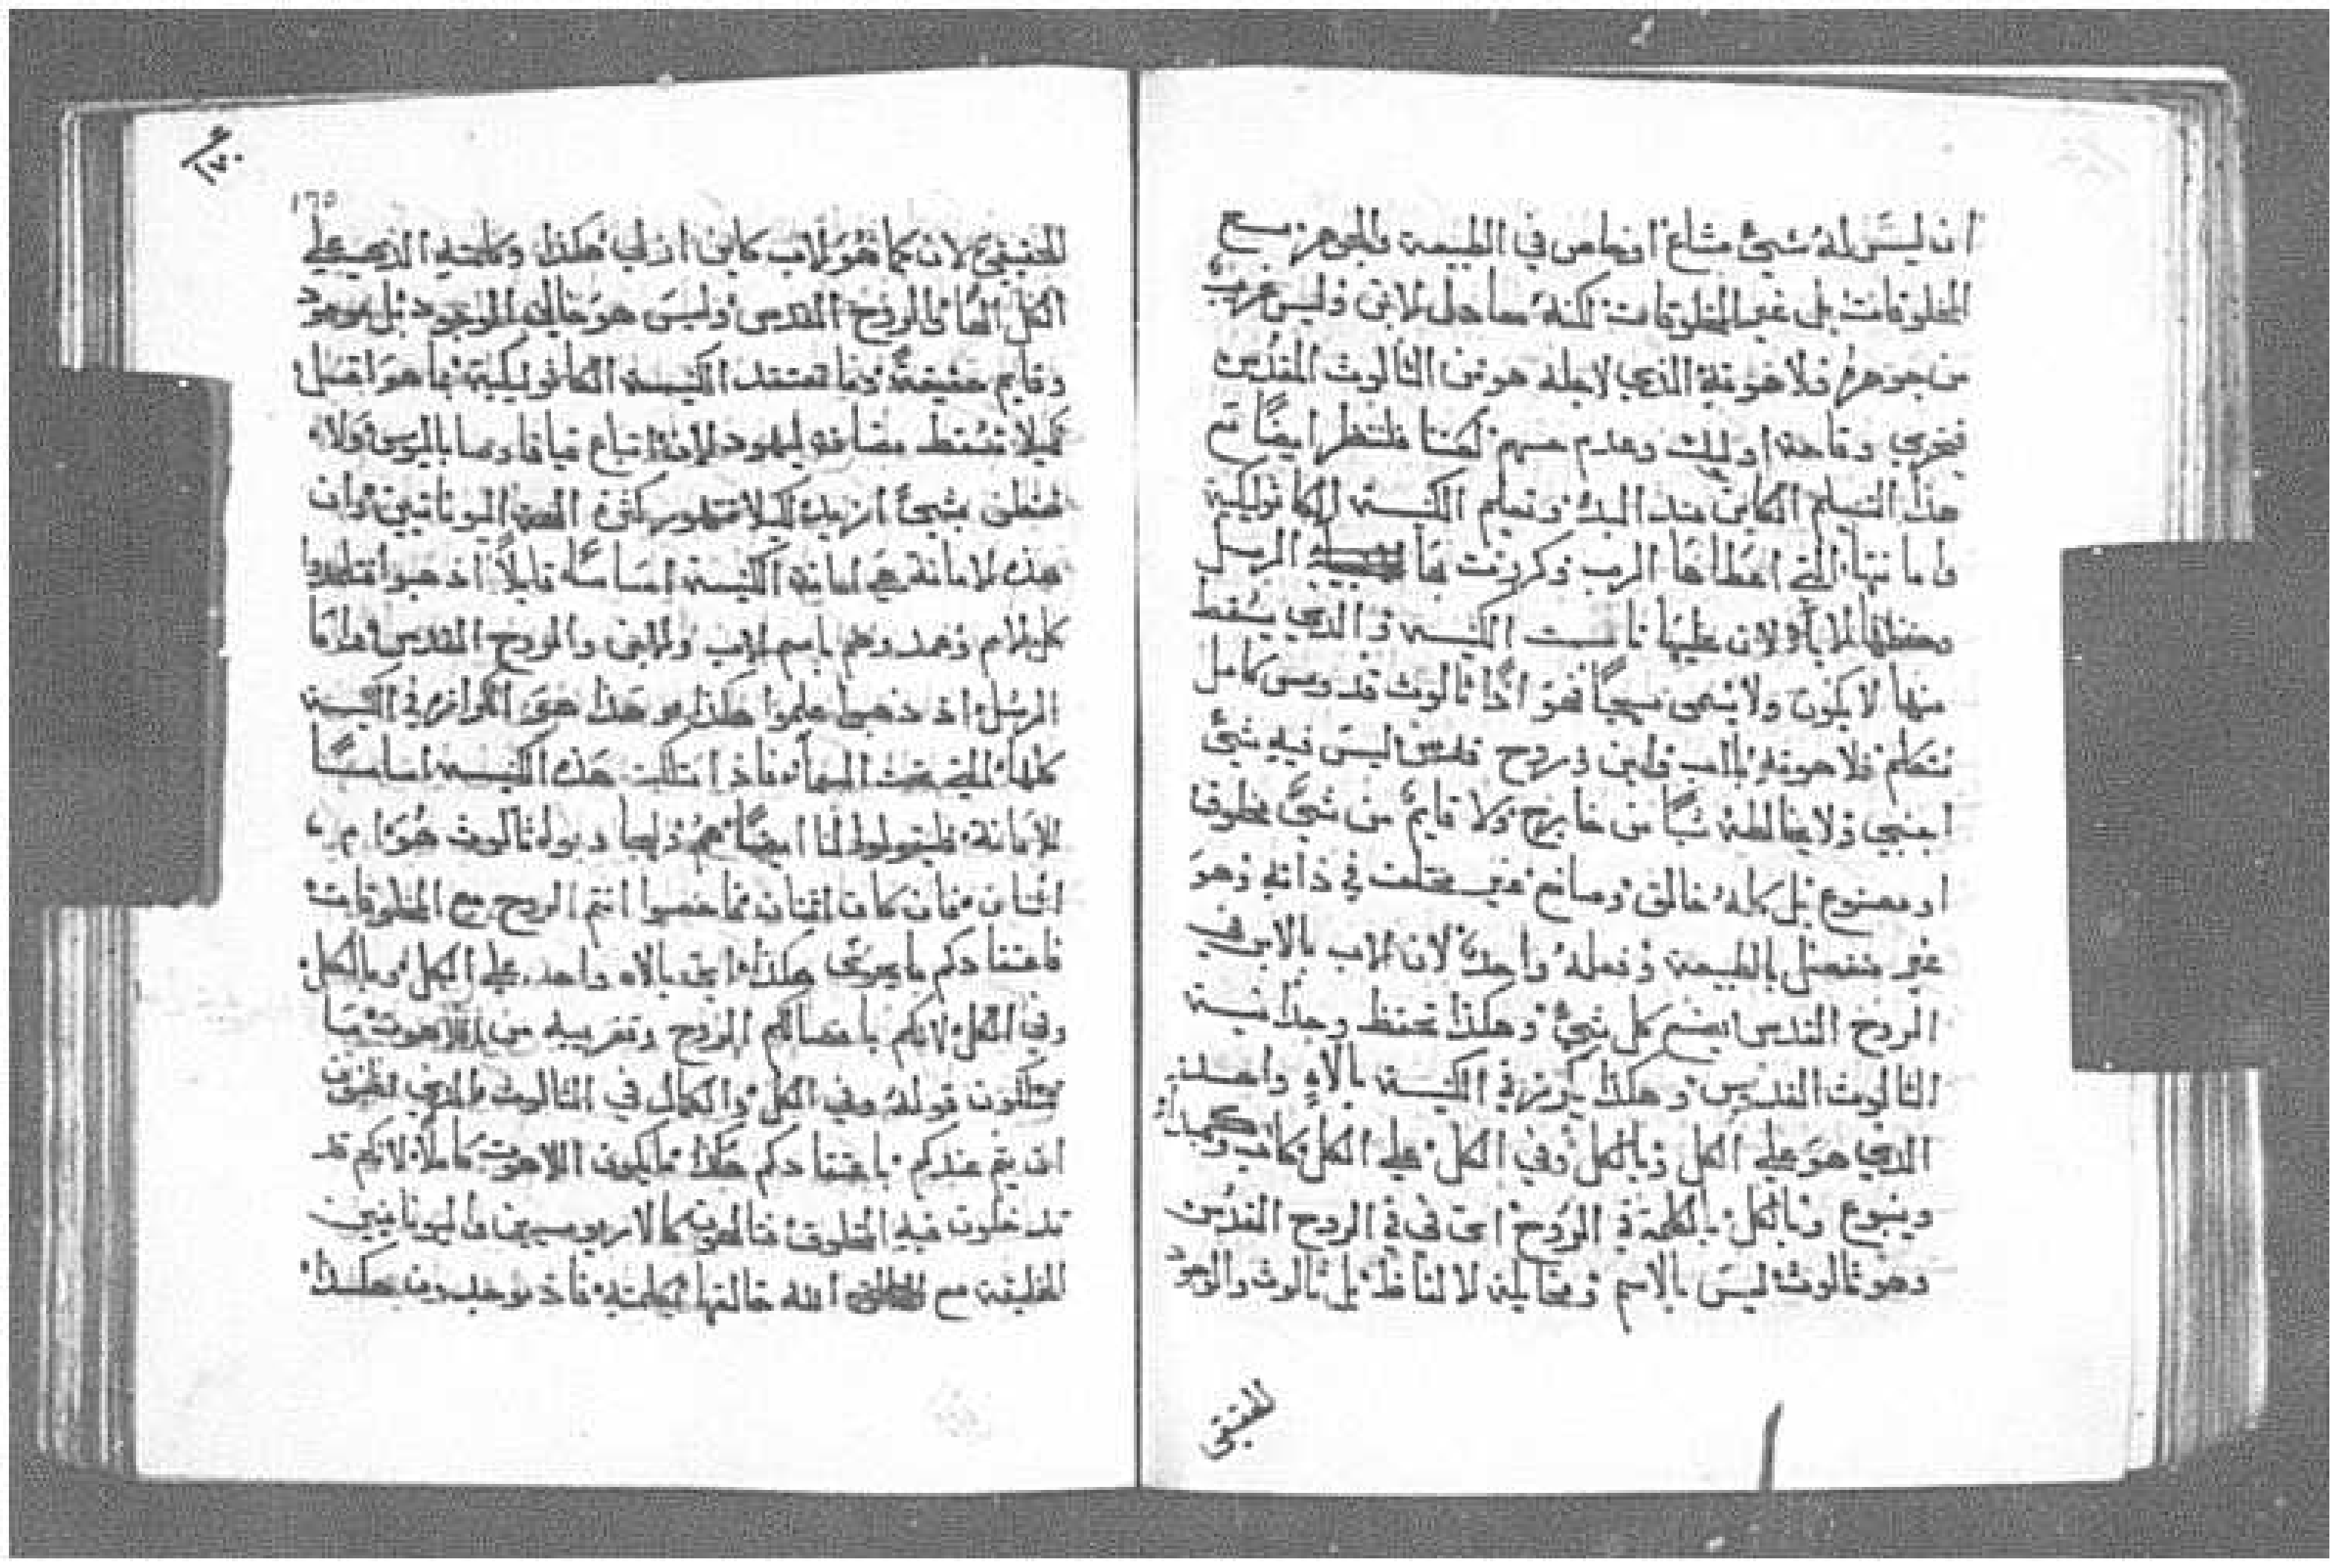 ان ليس له شيء مشاع او خاص في الطبيعة والجوهر مع
المخلوقات بل غير المخلوقات لكنه مساو للابن وليس غريب
من جوهره ولاهوته الذي لاجله هو من الثالوث المقدس
فخزي وقاحة اوليك وعدم حسهم لكننا فلننظر ايضًا مع
هذا التسلم الكاين منذ البدء وتعليم الكنيسة الكاثوليكية
وامانتها التي اعطاها الرب وكرزت بها الرسل
وحفظها الابآء لان عليها تاسست الكنيسة والذي يسقط
منها لا يكون ولا يسمى مسيحيًا فهو اذًا ثالوث قدوس كامل
نتكلم ولاهوته بالاب وابن وروح قدس ليس فيه شيء
اجنبي ولا يخالطه شيًا من خارج ولا قايم من شيء مخلوق
او مصنوع بل كله خالق وصانع غير مختلف في ذاته وهو
غير منفصل بالطبيعة وفعله واحد لان الاب بالابن في
الروح القدس يصنع كل شيء وهكذا تحفظ وحدانية
الثالوث القدوس وهكذا يكرز في الكنيسة بالاه واحد
الذي هو على الكل وبالكل وفي الكل على الكل كاب وكمبدأ
وينبوع وبالكل بالكلمة في الروح اعني في الروح القدس
وهو ثالوث ليس بالاسم ومخايلة الالفاظ بل ثالوث والوجود
للحقيقي
١٧٠
١٦٥
للحقيقي لان كما هو الاب كاين ازلي هكذا وكلمته الذي على
الكل الها والروح القدس وليس هو خالي الوجود بل موجود
وقايم حقيقة وما تعتقد الكنيسة الكاثوليكية بما هو اقل
ليلا تسقط مضافه ليهود الان اتباع قيافا وسابليوس ولا
تتعلق بشيء ازيد كيلا تتهور كثرة الهة اليونانيين وان
هذه الامانة هي امانة الكنيسة اساسًا قايلاً اذهبوا تلمذوا
كل الامم وعمدوهم باسم الاب والابن والروح القدس
الرسل اذ ذهبوا علموا هكذا وهذا هو الكرازة في الكنيسة
كلها التي تحت السمآء فاذ امتلكت هذه الكنيسة اساسًا
للامانة فليقولوا لنا ايضًا هم وليجاوبوا ثالوث هو ام
اثنان فان كان اثنان فاحصوا انتم الروح مع المخلوقات
فاعتقادكم ما يجري هكذا اعني بالاه واحد على الكل وبالكل
وفي الكل لانكم بانفصالكم الروح وتغريبه من اللاهوت ما
تمتلكون قوله وفي الكل والكمال في الثالوث الذي تظنون
ان يتم عندكم باعتقادكم هكذا ما يكون اللاهوت كاملا لانكم قد
تدخلون فيه المخلوق فتالهونه كالاريوسيين واليونانيين
الخليقة مع الله خالقها بكلمته فاذ توجدون هكذا